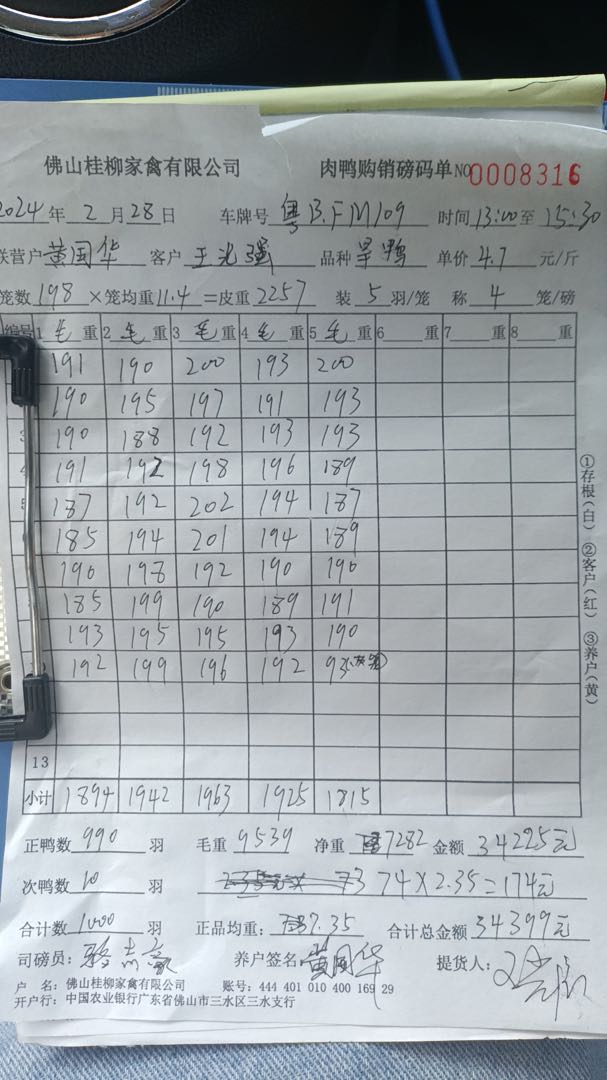 佛山桂柳家禽有限公司 肉鸭购销磅码单 NO 0008316
2024年 2月28日 车牌号 粤B.FM109 时间13:00至15:30
联营户 黄国华 客户 王光强 品种 旱鸭 单价 4.7 元/斤
笼数 198 ×笼均重 11.4 =皮重 2257 装 5 羽/笼 称 4 笼/磅
编号 1 毛 重 2 毛 重 3 毛 重 4 毛 重 5 毛 重 6 重 7 重 8 重
191 190 200 193 200
190 195 197 191 193
3 190 188 192 193 193
4 191 192 198 196 189
5 187 192 202 194 187
185 194 201 194 189
190 198 192 190 190
185 199 190 189 191
193 195 195 193 190
192 199 196 192 93
13
小计 1894 1942 1963 1925 1815
正鸭数 990 羽 毛重 9539 净重 7282 金额 34225元
次鸭数 10 羽 74×2.35=174元
合计数 1000 羽 正品均重: 7.35 合计总金额 34399元
司磅员: 养户签名 黄国华 提货人:
户 名: 佛山桂柳家禽有限公司 账号: 444 401 010 400 169 29
开户行: 中国农业银行广东省佛山市三水区三水支行
①存根(白) ②客户(红) ③养户(黄)